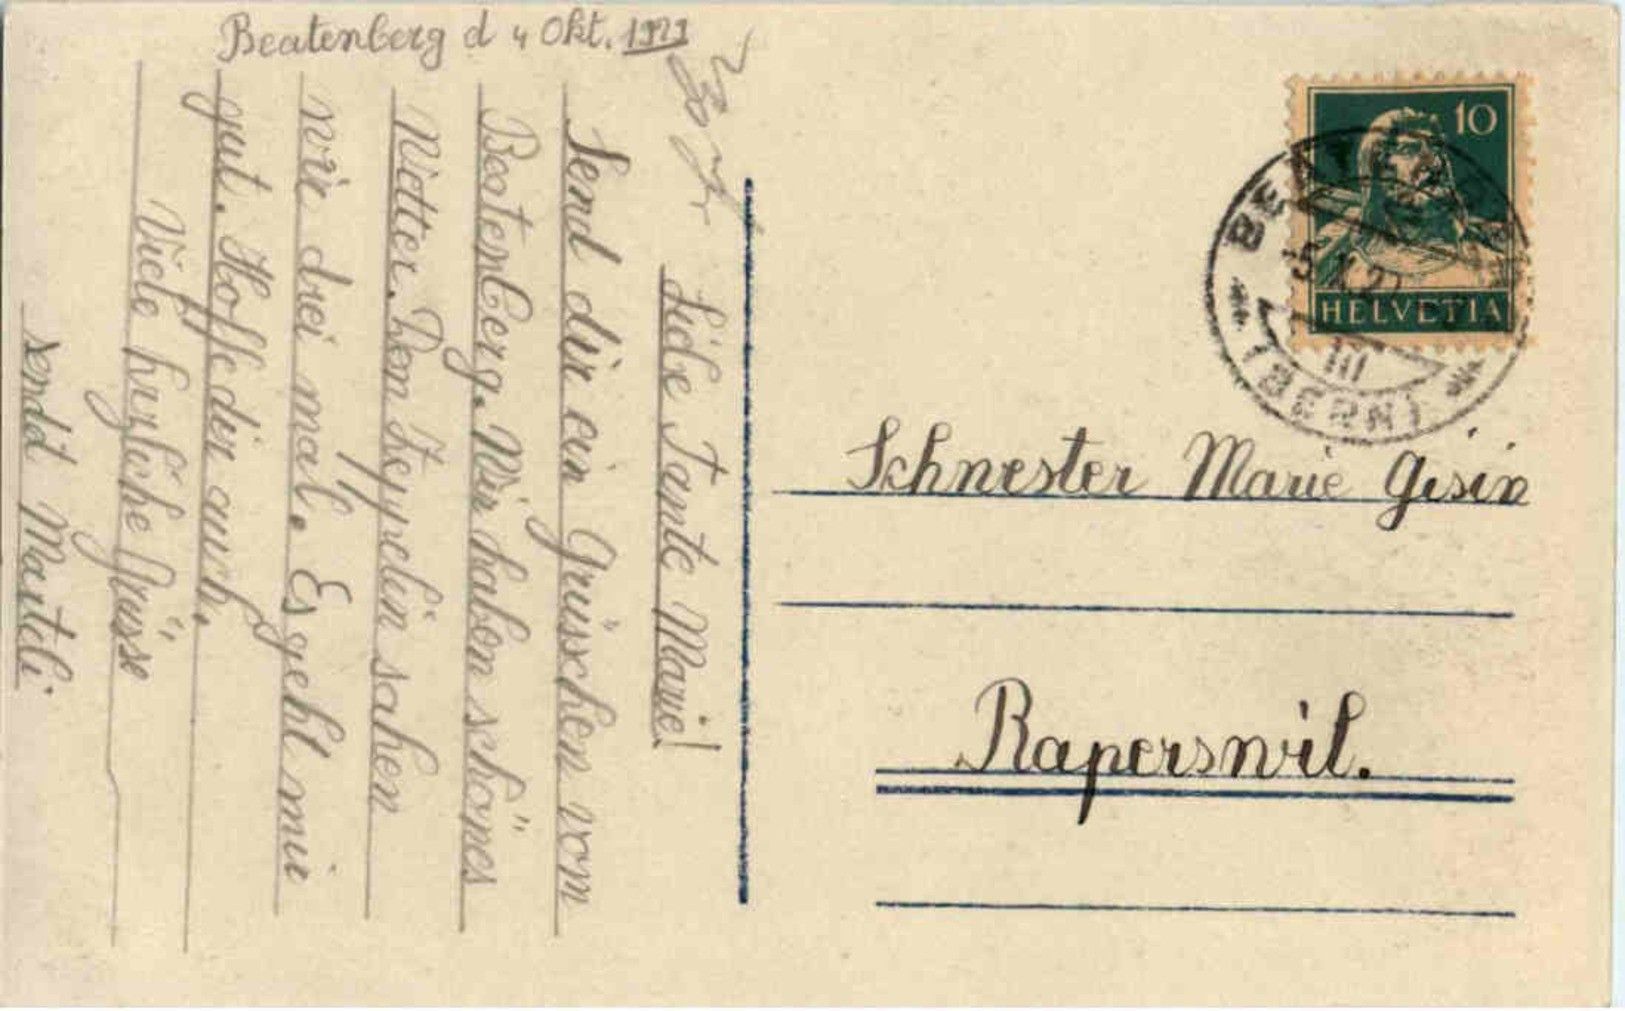 Beatenberg d 4 Okt. 1929
Liebe Tante Marie!
Send dir ein Grüsschen vom
Beatenberg. Wir haben schönes
Wetter. Den Zeppelin sahen
wir drei mal. Es geht mir
gut. Hoffe dir auch.
Viele herzliche Grüsse
sendd Maiteli
10
HELVETIA
BEATENBERG
(BERN)
III
Schwester Marie Gisin
Raperswil.